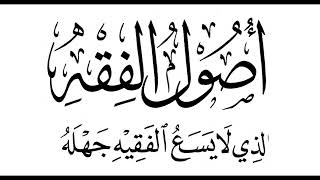 أُصُولُ الفِقْهِ
الَّذِي لَا يَسَعُ ٱلفَقِيهِ جَهْلَهُ